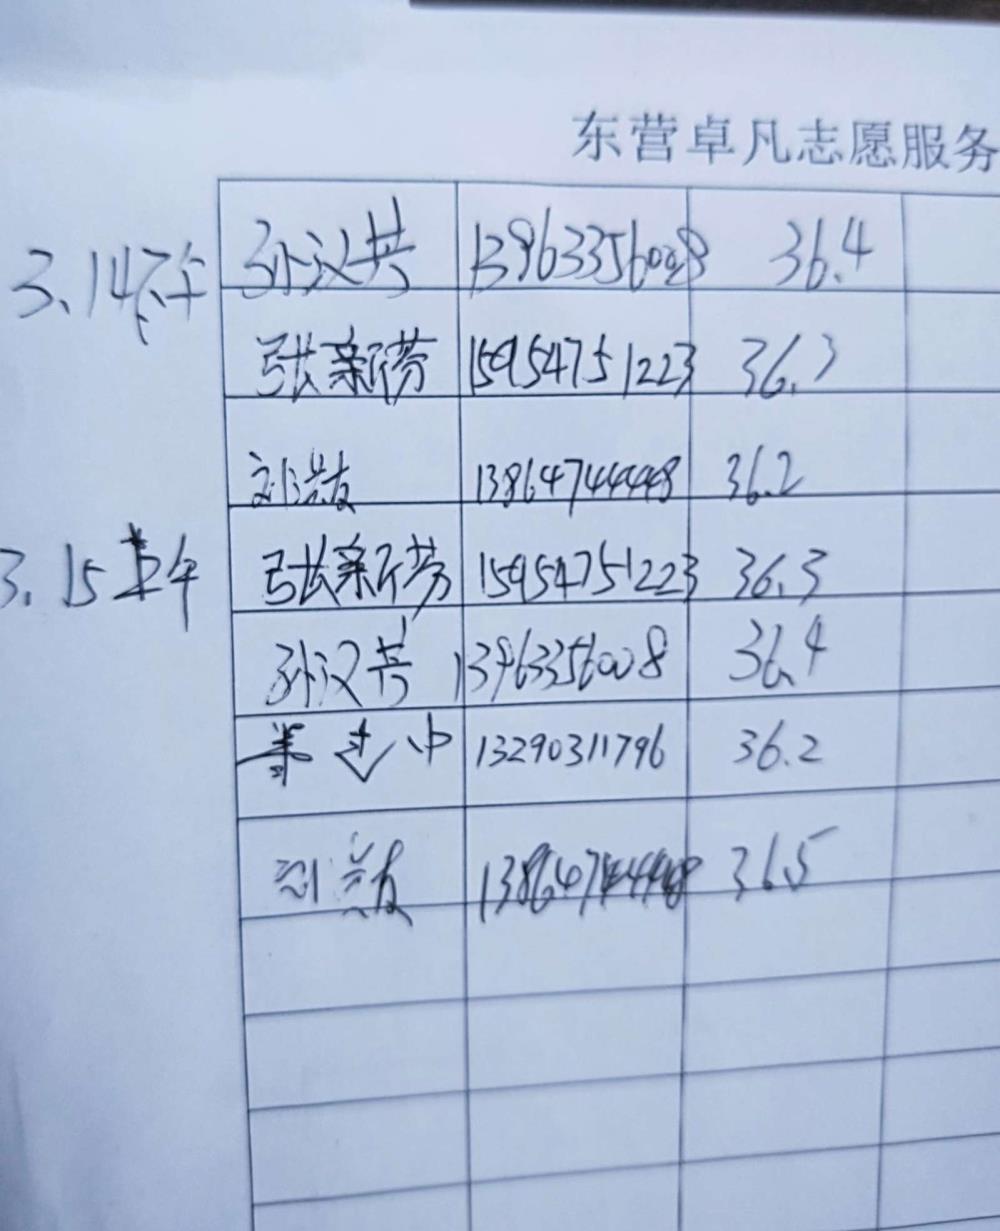 东营卓凡志愿服务
3.14下午 孙汉芸 13963356008 36.4
张新芳 15954751223 36.3
刘 13864744448 36.2
3.15上午 张新芳 15954751223 36.3
孙汉芸 13963356008 36.4
中 13290311796 36.2
刘 13864744448 36.5